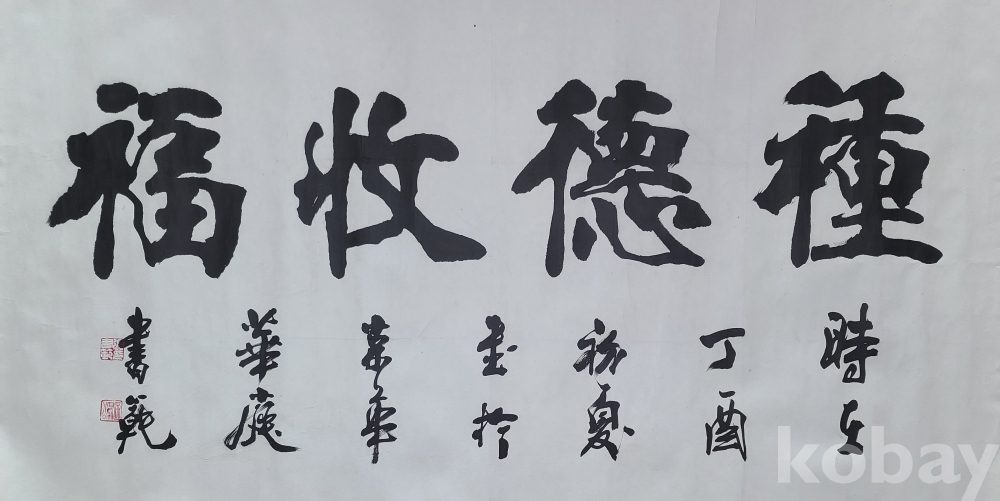 種德收福
時在
丁酉
初夏
書於
華
華
書
kobay